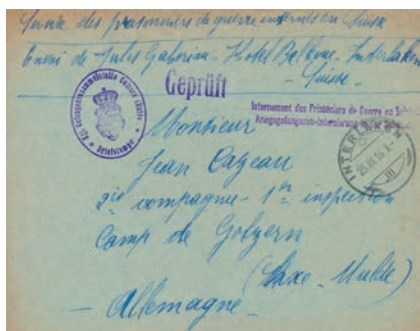 Service des prisonniers de guerre internés en Suisse
Envoi de Jules Gaborian - Hotel Bellevue - Interlaken
- Suisse -
Geprüft
Internement des Prisonniers de Guerre en Suisse
Kriegsgefangenen-Internierung
Briefstempel
INTERLAKEN
Monsieur
Jean Cazeau
2ie compagnie - 1re inspection
Camp de Golzern
(Saxe - Mulde)
- Allemagne -